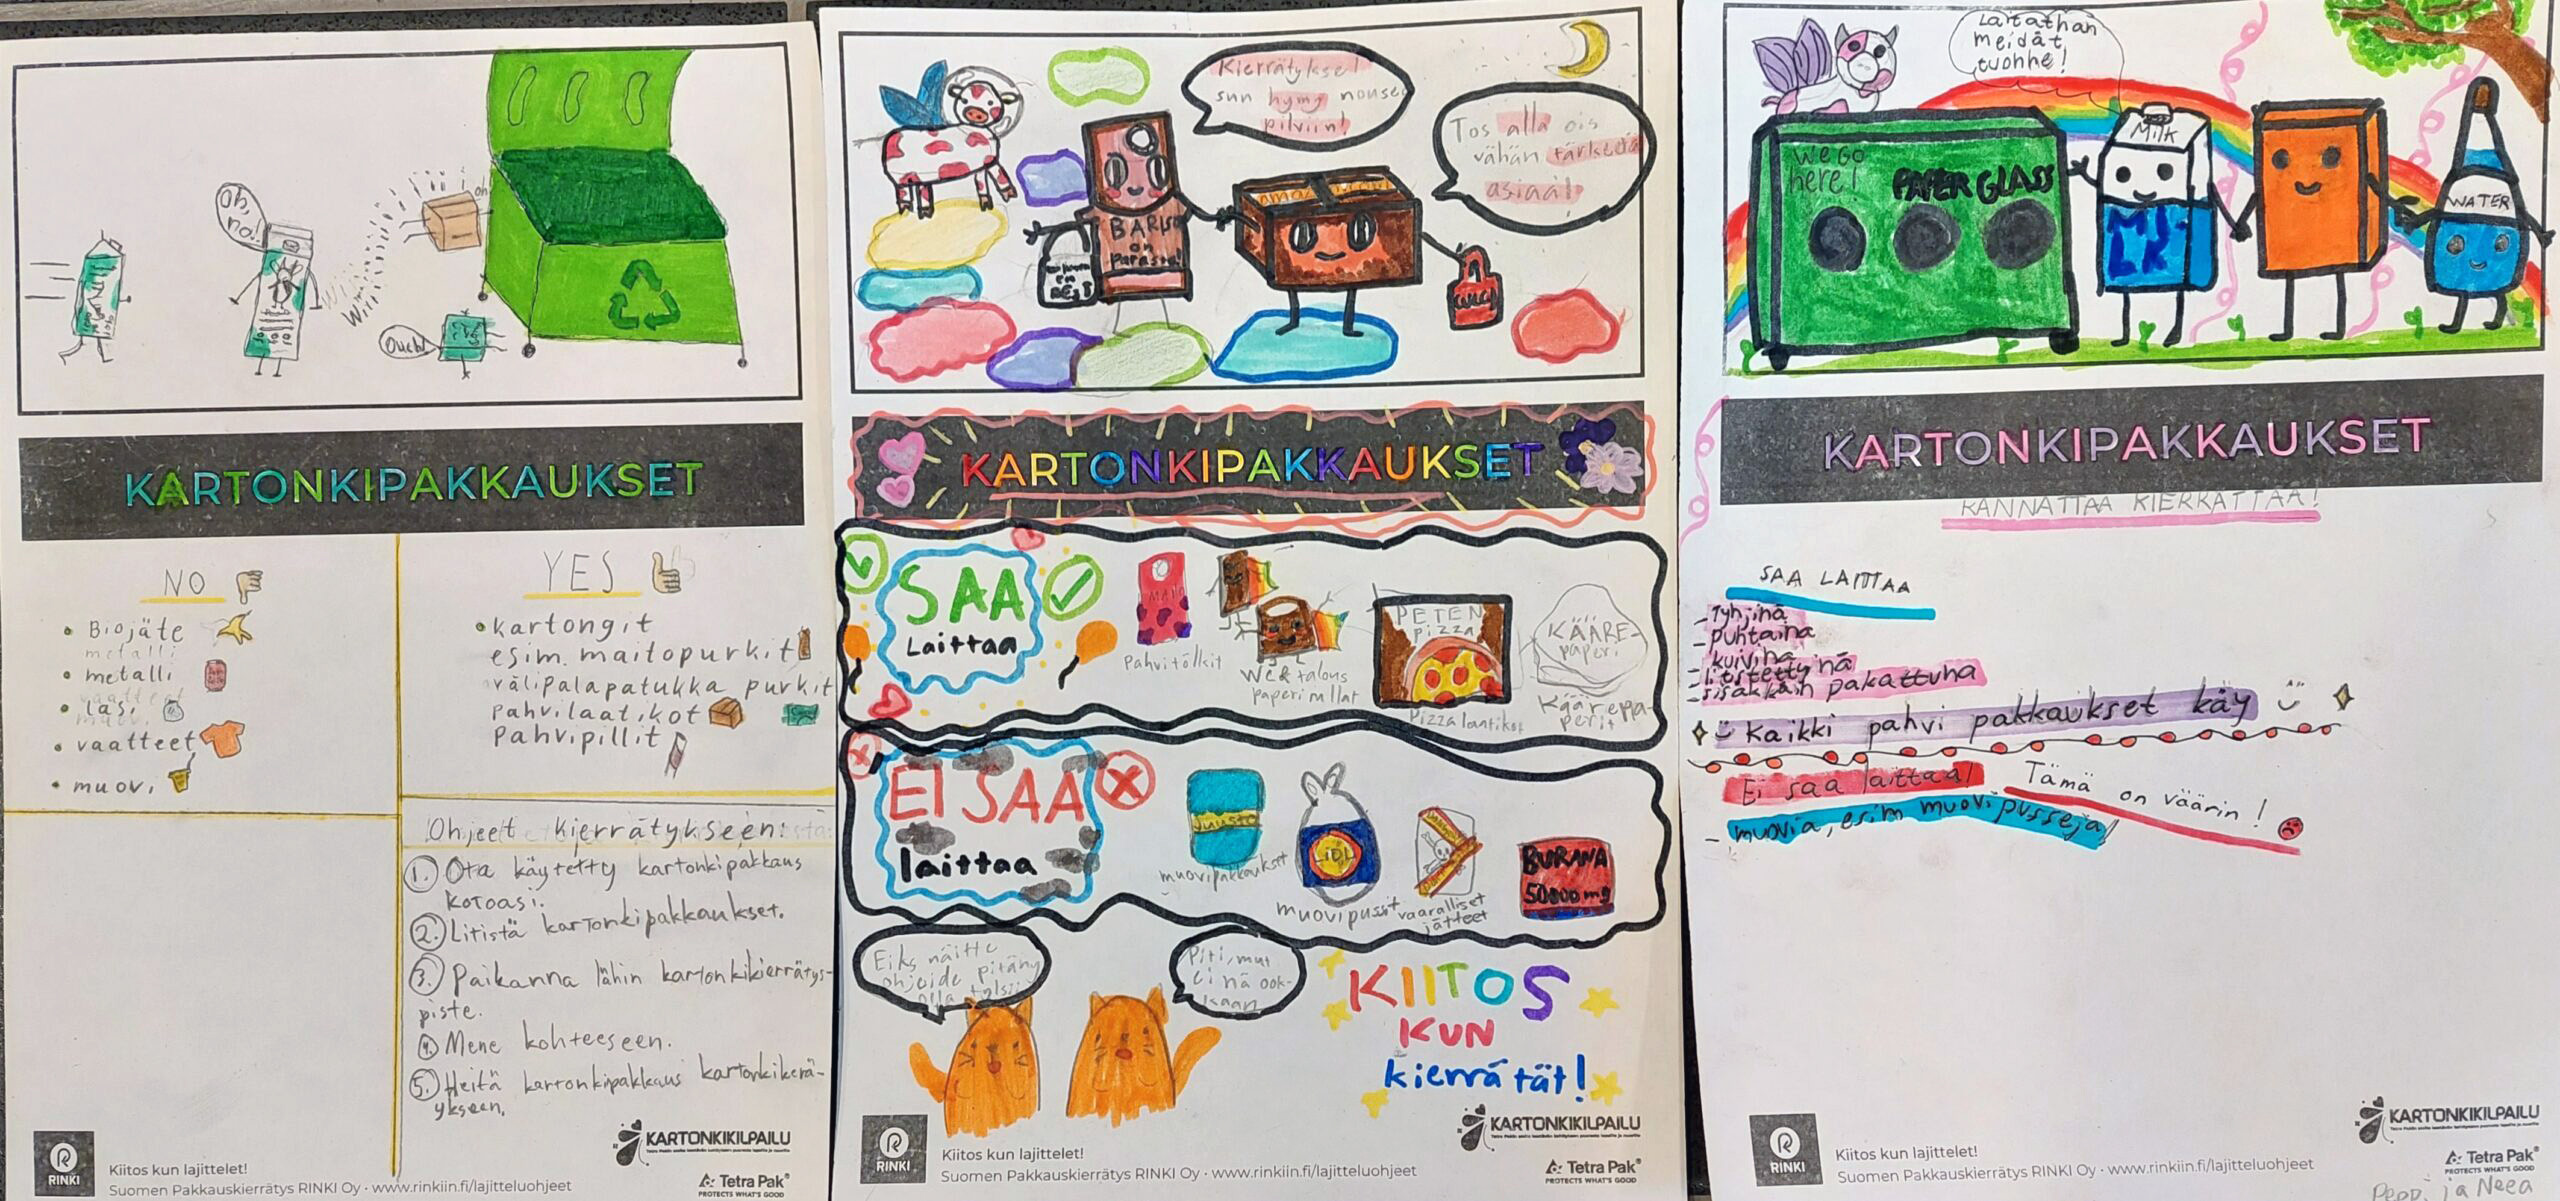 Oh, no!
oh
Ouch!
KARTONKIPAKKAUKSET
NO
Biojäte
metalli
lasi
vaatteet
muovi
YES
kartongit
esim. maitopurkit
välipalapatukka purkit
pahvilaatikot
pahvipillit
Ohjeet kierrätykseen:
1. Ota käytetty kartonkipakkaus
kotoasi.
2. Litistä kartonkipakkaukset.
3. Paikanna lähin kartonkikierrätys-
piste.
4. Mene kohteeseen.
5. Heitä kartonkipakkaus kartonkikerä-
ykseen.
KARTONKIKILPAILU
RINKI
Kiitos kun lajittelet!
Suomen Pakkauskierrätys RINKI Oy · www.rinkiin.fi/lajitteluohjeet
Tetra Pak®
PROTECTS WHAT'S GOOD
Kierrätyksel
sun hymy nousee
pilviin!
Tos alla ois
vähän tärkeetä
asiaa!
BARISO
on
Parasta!
GUCCI
KARTONKIPAKKAUKSET
SAA
Laittaa
MAITO
Pahvitölkit
We & talous
paperirullat
PETEN
pizza
Pizzalaatikot
KÄÄRE-
paperi
Kääreppa-
perit
EI SAA
laittaa
Juusto
muovipakkaukset
LIDL
muovipussit
vaaralliset
jätteet
BURANA
50800mg
Eiks näitte
ohjeide pitäny
olla tylsii
Piti, mut
ei nä ook-
kaan
KIITOS
KUN
kierrätät!
KARTONKIKILPAILU
RINKI
Kiitos kun lajittelet!
Suomen Pakkauskierrätys RINKI Oy · www.rinkiin.fi/lajitteluohjeet
Tetra Pak®
PROTECTS WHAT'S GOOD
Laitathan
meidät
tuohne!
We go
here!
PAPER GLASS
MILK
WATER
KARTONKIPAKKAUKSET
KANNATTAA KIERRÄTTÄÄ!
SAA LAITTAA
- Tyhjinä
- puhtaina
- kuivina
- litistettyinä
- sisäkkäin pakattuna
Kaikki pahvi pakkaukset käy
Ei saa laittaa!
Tämä on väärin!
- muovia, esim muovi pusseja
KARTONKIKILPAILU
RINKI
Kiitos kun lajittelet!
Suomen Pakkauskierrätys RINKI Oy · www.rinkiin.fi/lajitteluohjeet
Tetra Pak®
PROTECTS WHAT'S GOOD
Peppi ja Neea